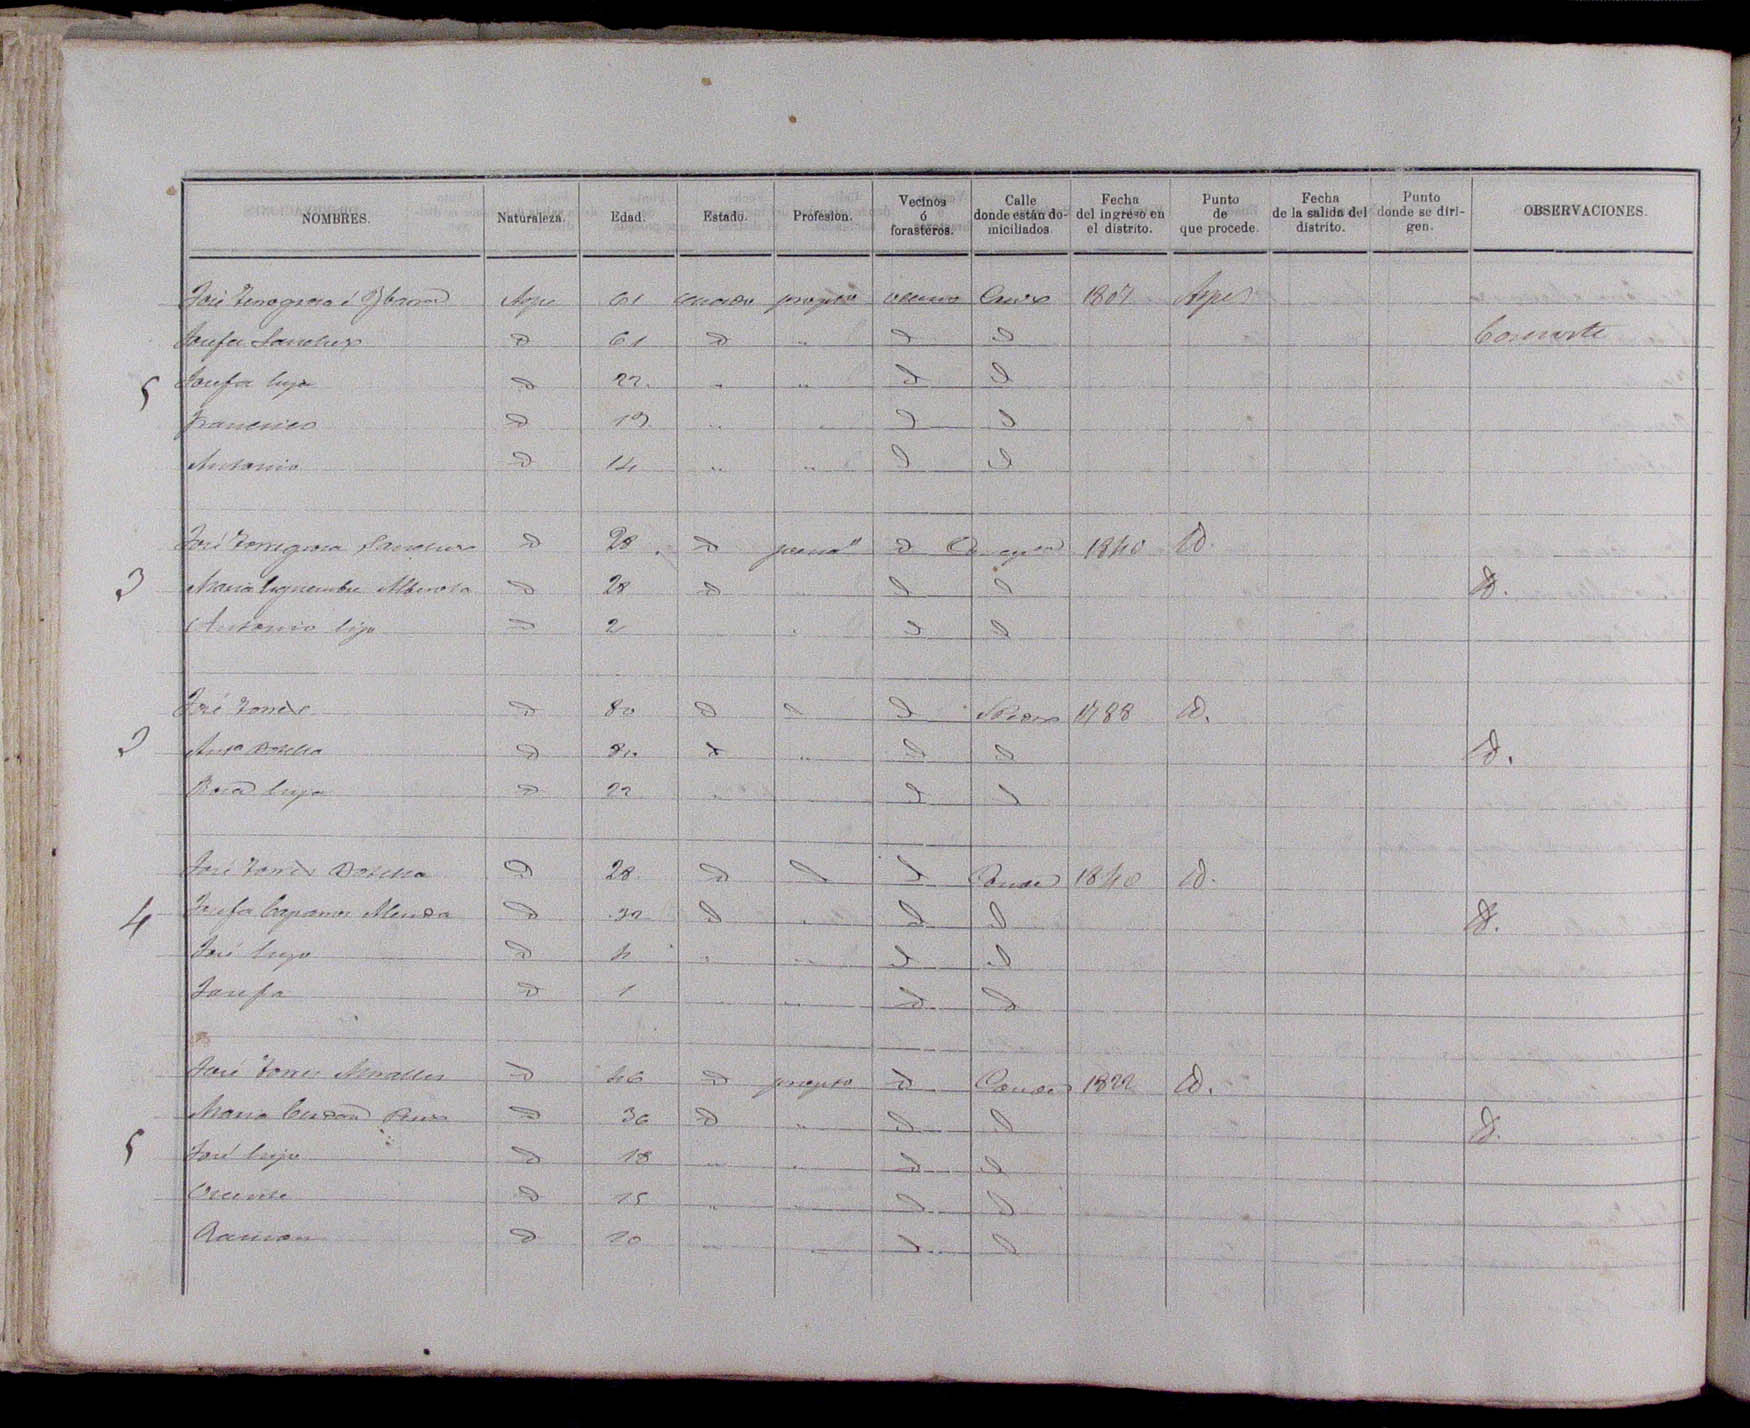 NOMBRES. Naturaleza. Edad. Estado. Profesion. Vecinos ó forasteros. Calle donde están domiciliados. Fecha del ingreso en el distrito. Punto de que procede. Fecha de la salida del distrito. Punto donde se dirigen. OBSERVACIONES.
José Torregrosa é Aspe 61 casado vecino 1807 Aspe
Josefa Sanchez D 61 D " D D Consorte
5 Josefa hija D 22. " " D D
Francisco D 19. " " D D
Antonio D 14 " " D D
José Torregrosa Sanchez D 28. D D 1840 Id.
3 Maria Alberola D 28 D " D D Id.
Antonio hijo D 2 " D D
José Torres D 80 D D D 1788 Id.
3 Antª Botella D 80. D " D D Id.
Rosa hija D 22 " D D
José Torres Botella D 28. D D D Conde 1840 Id.
4 Josefa D 32 D " D D Id.
José hijo D 4 " " D D
Josefa D 1 " D D
José Torres Miralles D 46 D D Conde 1822 Id.
Maria D 36 D " D D Id.
5 José hijo D 18 " " D D
Vicente D 15 " " D D
Ramon D 10 " " D D